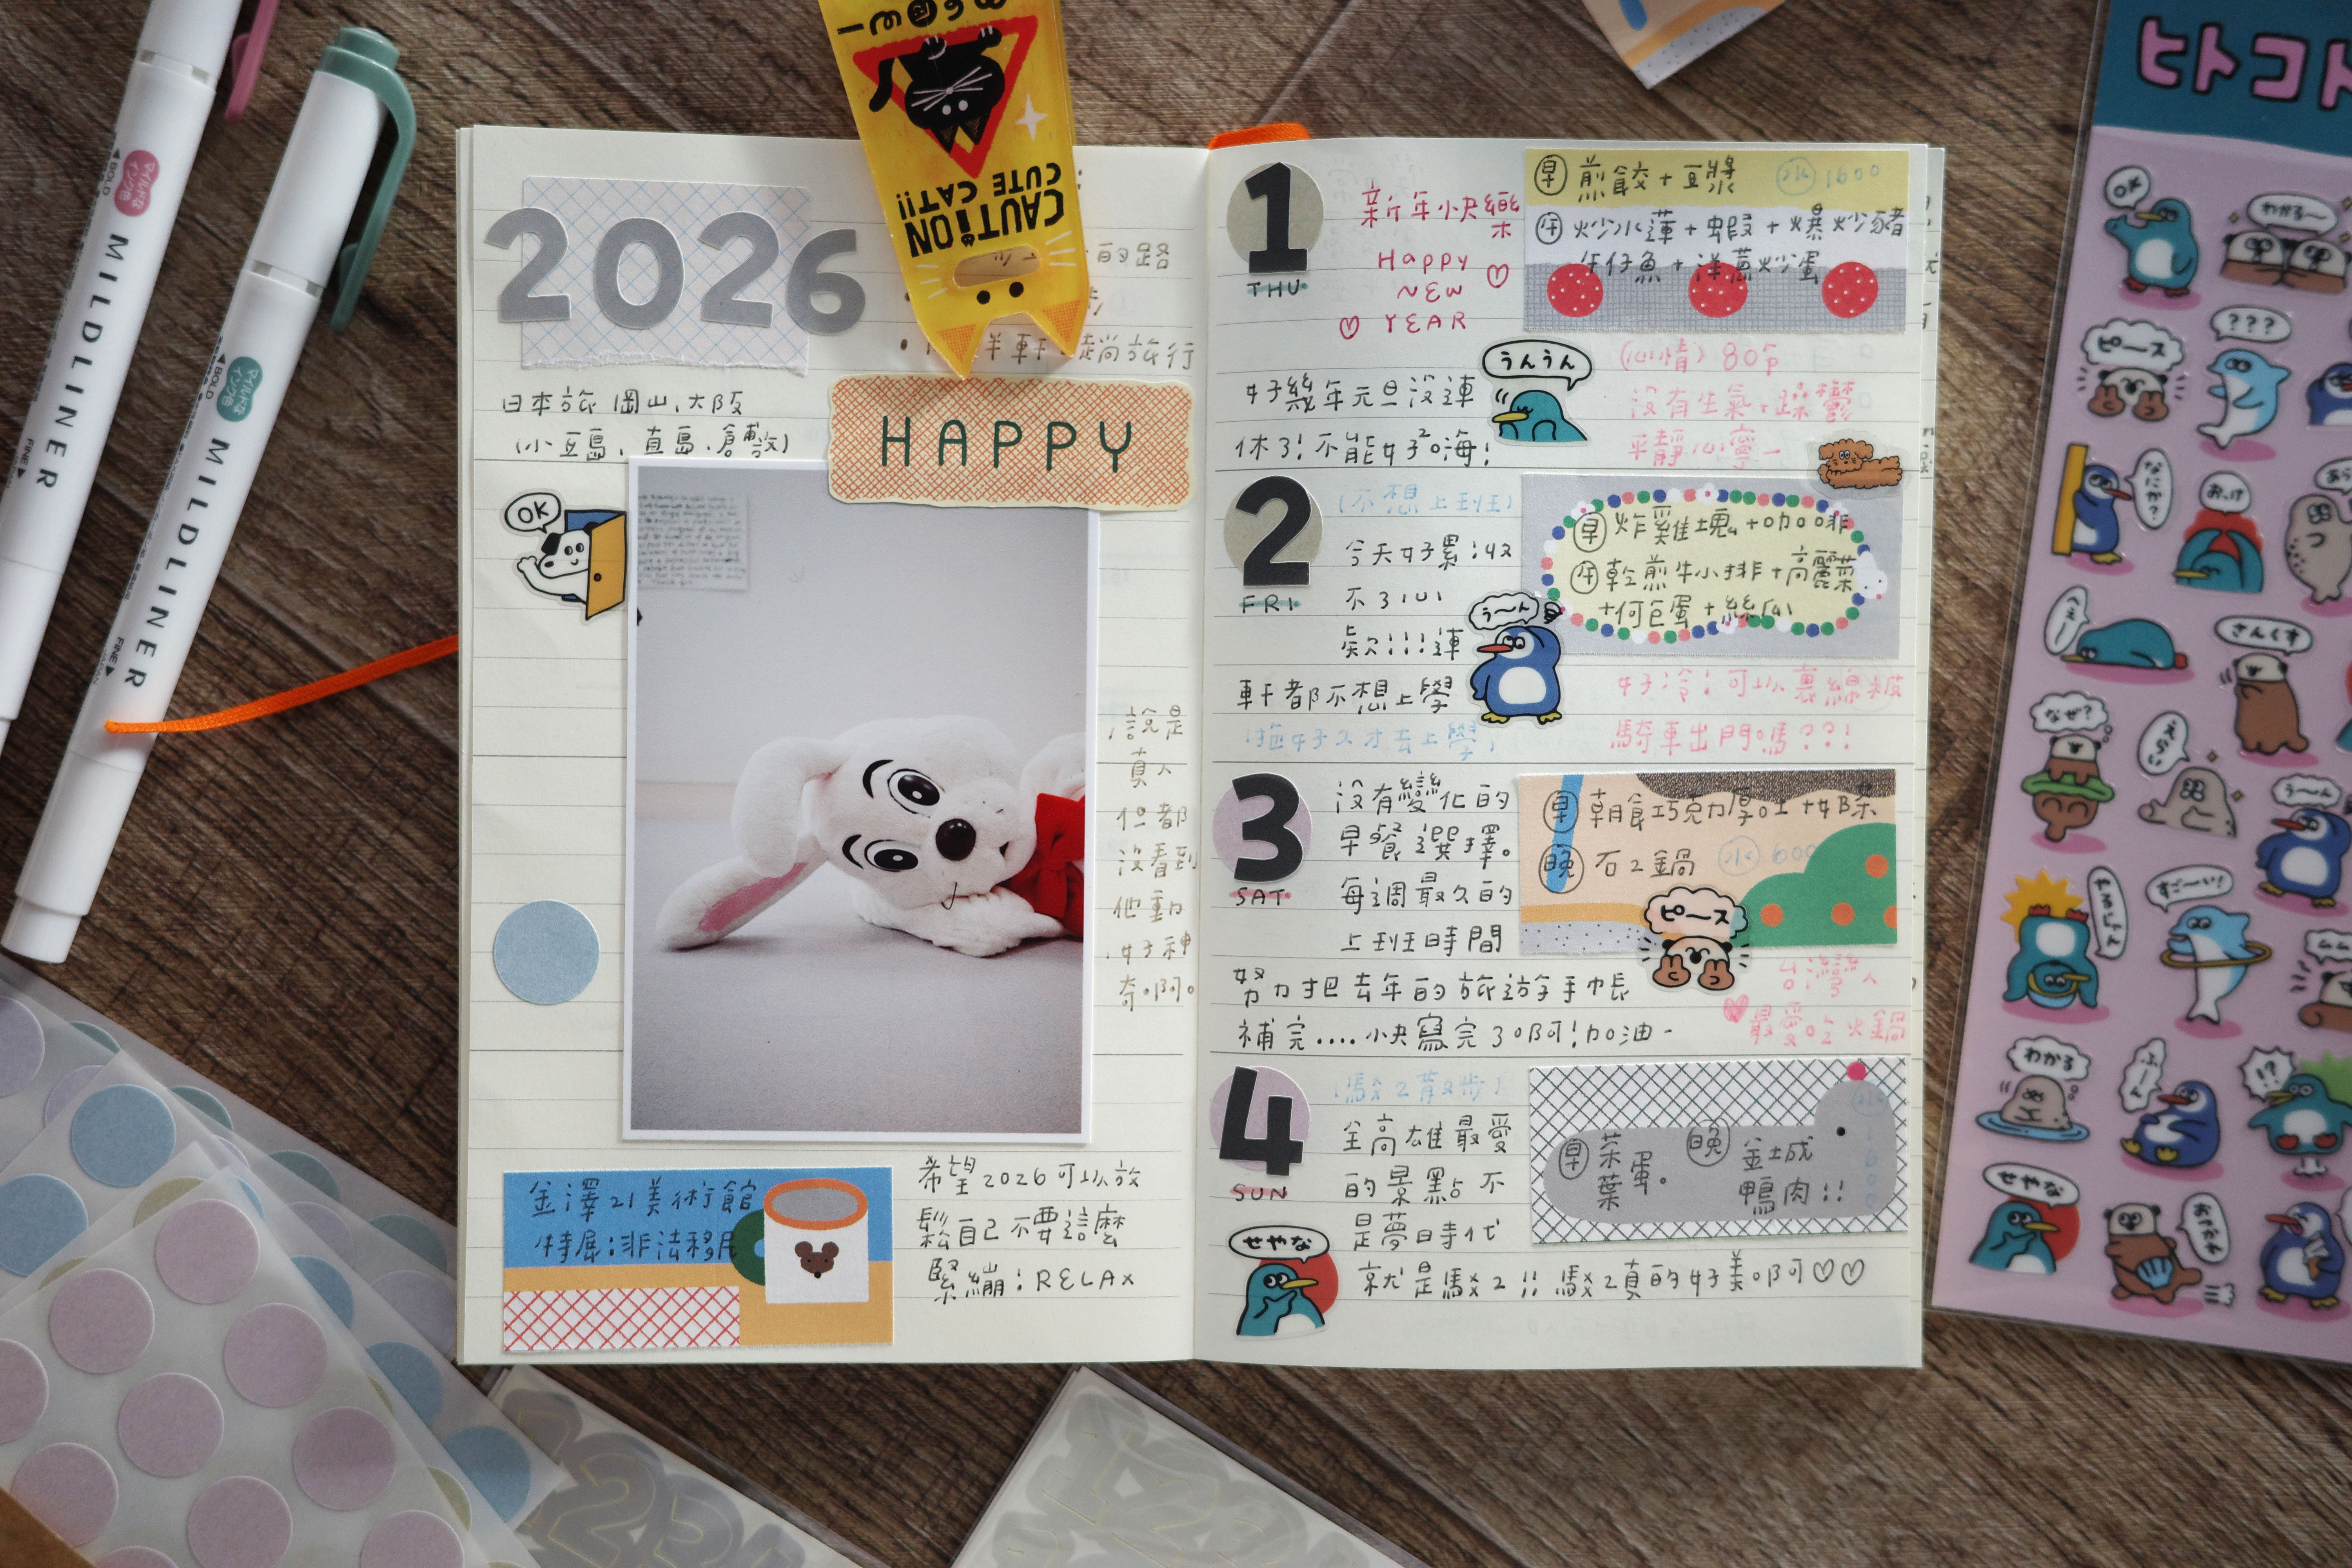 MILDLINER
BOLD
FINE
マイルドな
インク色
MILDLINER
BOLD
FINE
マイルドな
インク色
CAUTION
CUTE CAT!!
2026
的路
旅行
日本旅 岡山、大阪
(小豆島、直島、倉敷)
HAPPY
OK
說是
真人
但都
沒看到
他動
好神
奇啊。
金澤21美術館
特展:非法移民
希望2026可以放
鬆自己不要這麼
緊繃!RELAX
1
THU
新年快樂
Happy
NEW
YEAR
早 煎餃+豆漿
水 1600
午 炒水蓮+蝦+爆炒豬
午仔魚+洋蔥炒蛋
うんうん
(心情) 80分
沒有生氣+躁鬱
平靜心寧~
好幾年元旦沒連
休了!不能好2嗨!
2
FRI
(不想上班)
今天好累!收
不了心
欸!!!連
軒都不想上學
(拖好久才去上學)
う〜ん
早 炸雞塊+咖啡
午 乾煎牛小排+高麗菜
+荷包蛋+絲瓜
好冷!可以裹綿被
騎車出門嗎??!
3
SAT
沒有變化的
早餐選擇。
每週最久的
上班時間
努力把去年的旅遊手帳
補完....快寫完了啊!加油~
早 朝食巧克力厚吐+奶茶
晚 石2鍋
水 600
ピース
台灣人
最愛吃火鍋
4
SUN
(駁2散步)
全高雄最愛
的景點不
是夢時代
就是駁2!! 駁2真的好美啊
早 茶葉蛋。
晚 金土城
鴨肉!!
せやな
ヒトコト
OK
わかる〜
ピース
???
なにか?
おっけ
へぇー
さんくす
なぜ?
えらい
う〜ん
やるじゃん
すご〜い!
わかる
ふーん
!?
せやな
おつかれ